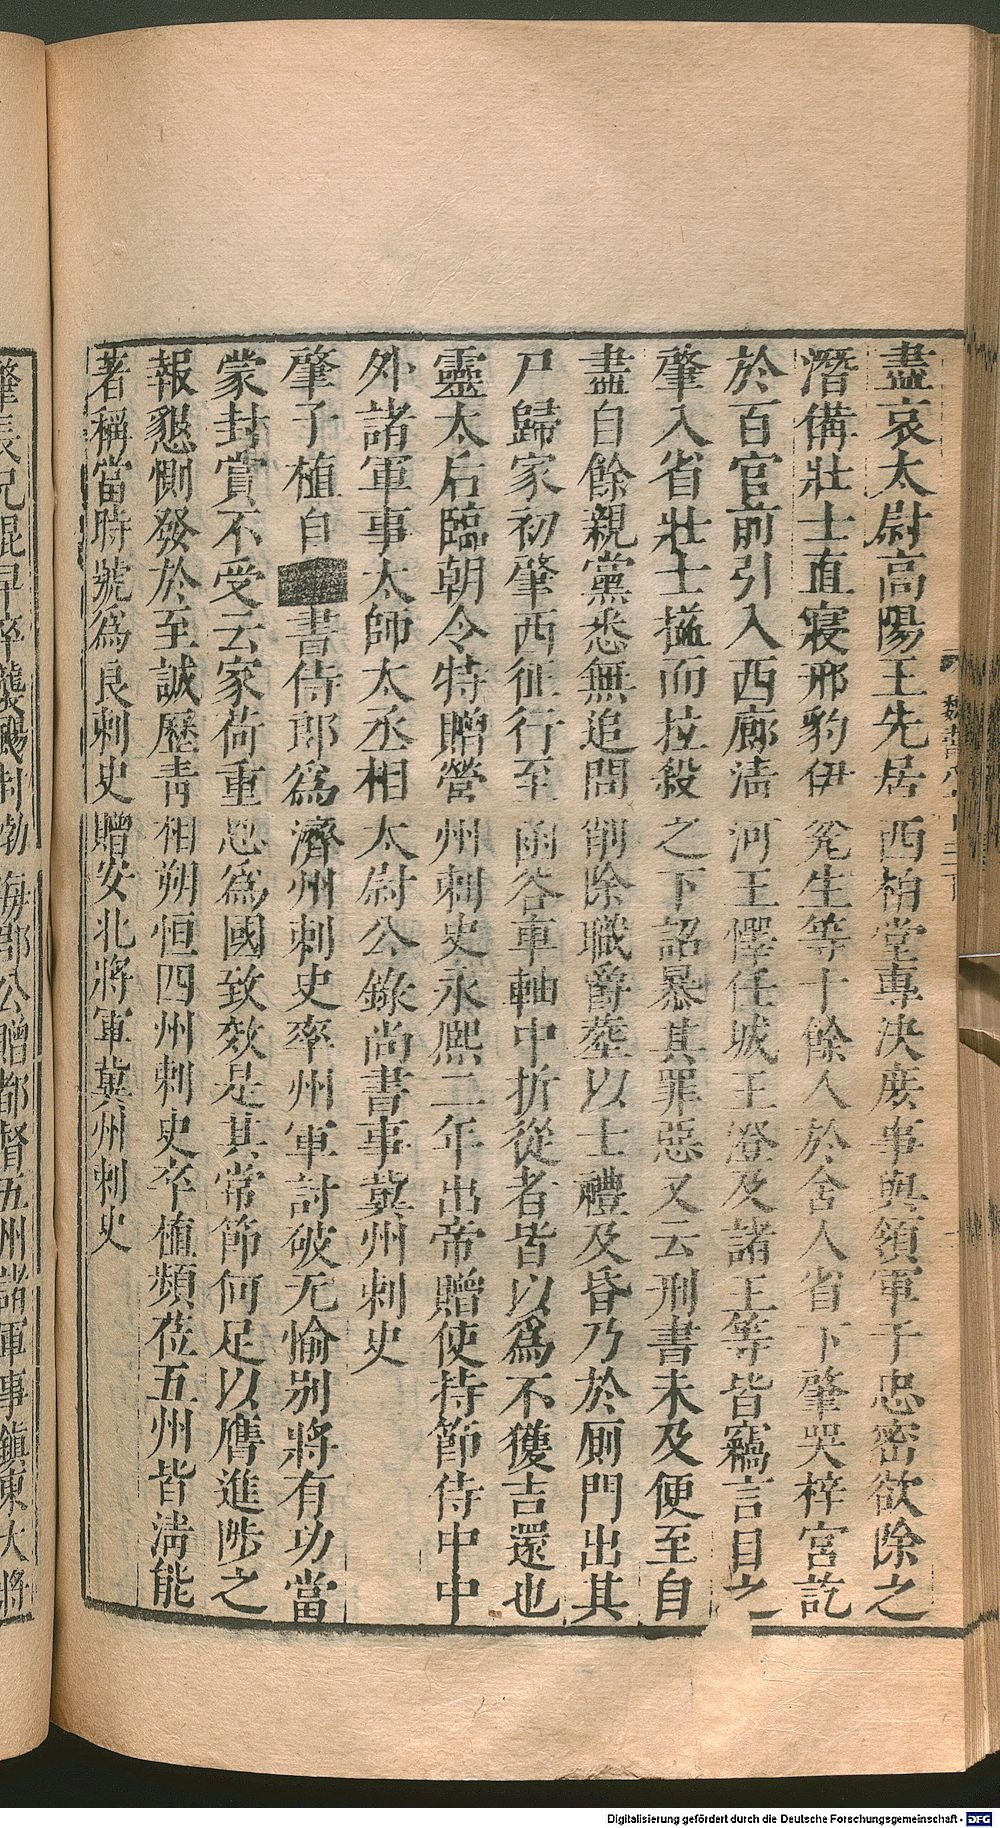 盡哀太尉高陽王先居西柏堂專決庶事與領軍于忠密欲除之
潛備壯士直寢邢豹伊㝹生等十餘人於舍人省下肇哭梓宮訖
於百官前引入西廊淸河王懌任城王澄及諸王等皆竊言目之
肇入省壯士搤而拉殺之下詔暴其罪惡又云刑書未及便至自
盡自餘親黨悉無追問削除職爵葬以士禮及昏乃於厠門出其
尸歸家初肇西征行至函谷車軸中折從者皆以爲不獲吉還也
靈太后臨朝令特贈營州刺史永熙二年出帝贈使持節侍中中
外諸軍事太師太丞相太尉公錄尚書事冀州刺史
肇子植自書侍郎爲濟州刺史率州軍討破元愉別將有功當
蒙封賞不受云家荷重恩爲國致效是其常節何足以膺進陟之
報懇惻發於至誠歷靑相朔恒四州刺史卒植頻莅五州皆淸能
著稱當時號爲良刺史贈安北將軍冀州刺史
肇長兄琨早卒襲颺封勃海郡公贈都督五州諸軍事鎭東大將
Digitalisierung gefördert durch die Deutsche Forschungsgemeinschaft - DFG